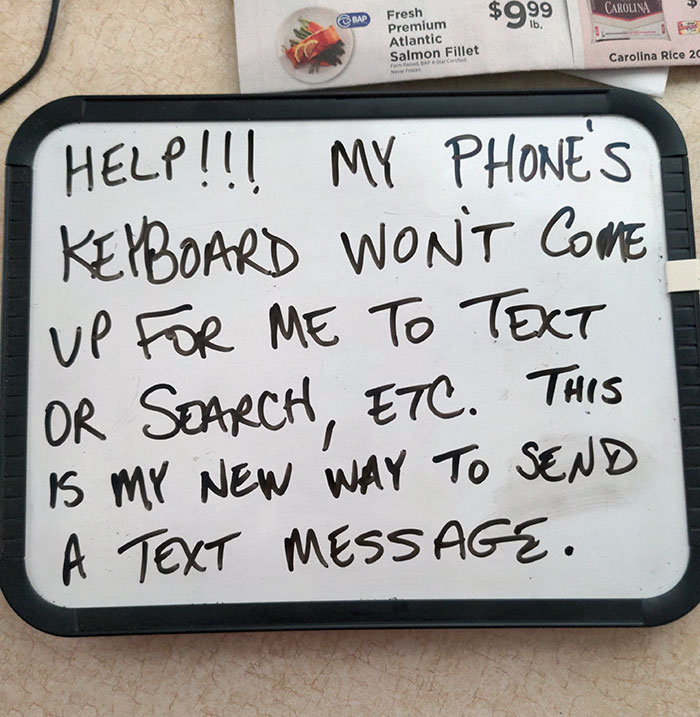 BAP
Fresh
Premium
Atlantic
Salmon Fillet
Farm Raised, BAP 4-Star Certified,
Never Frozen
$9 99
lb.
CAROLINA
$
Carolina Rice 20
HELP!!! MY PHONE'S
KEYBOARD WON'T COME
UP FOR ME TO TEXT
OR SEARCH, ETC. THIS
IS MY NEW WAY TO SEND
A TEXT MESSAGE.